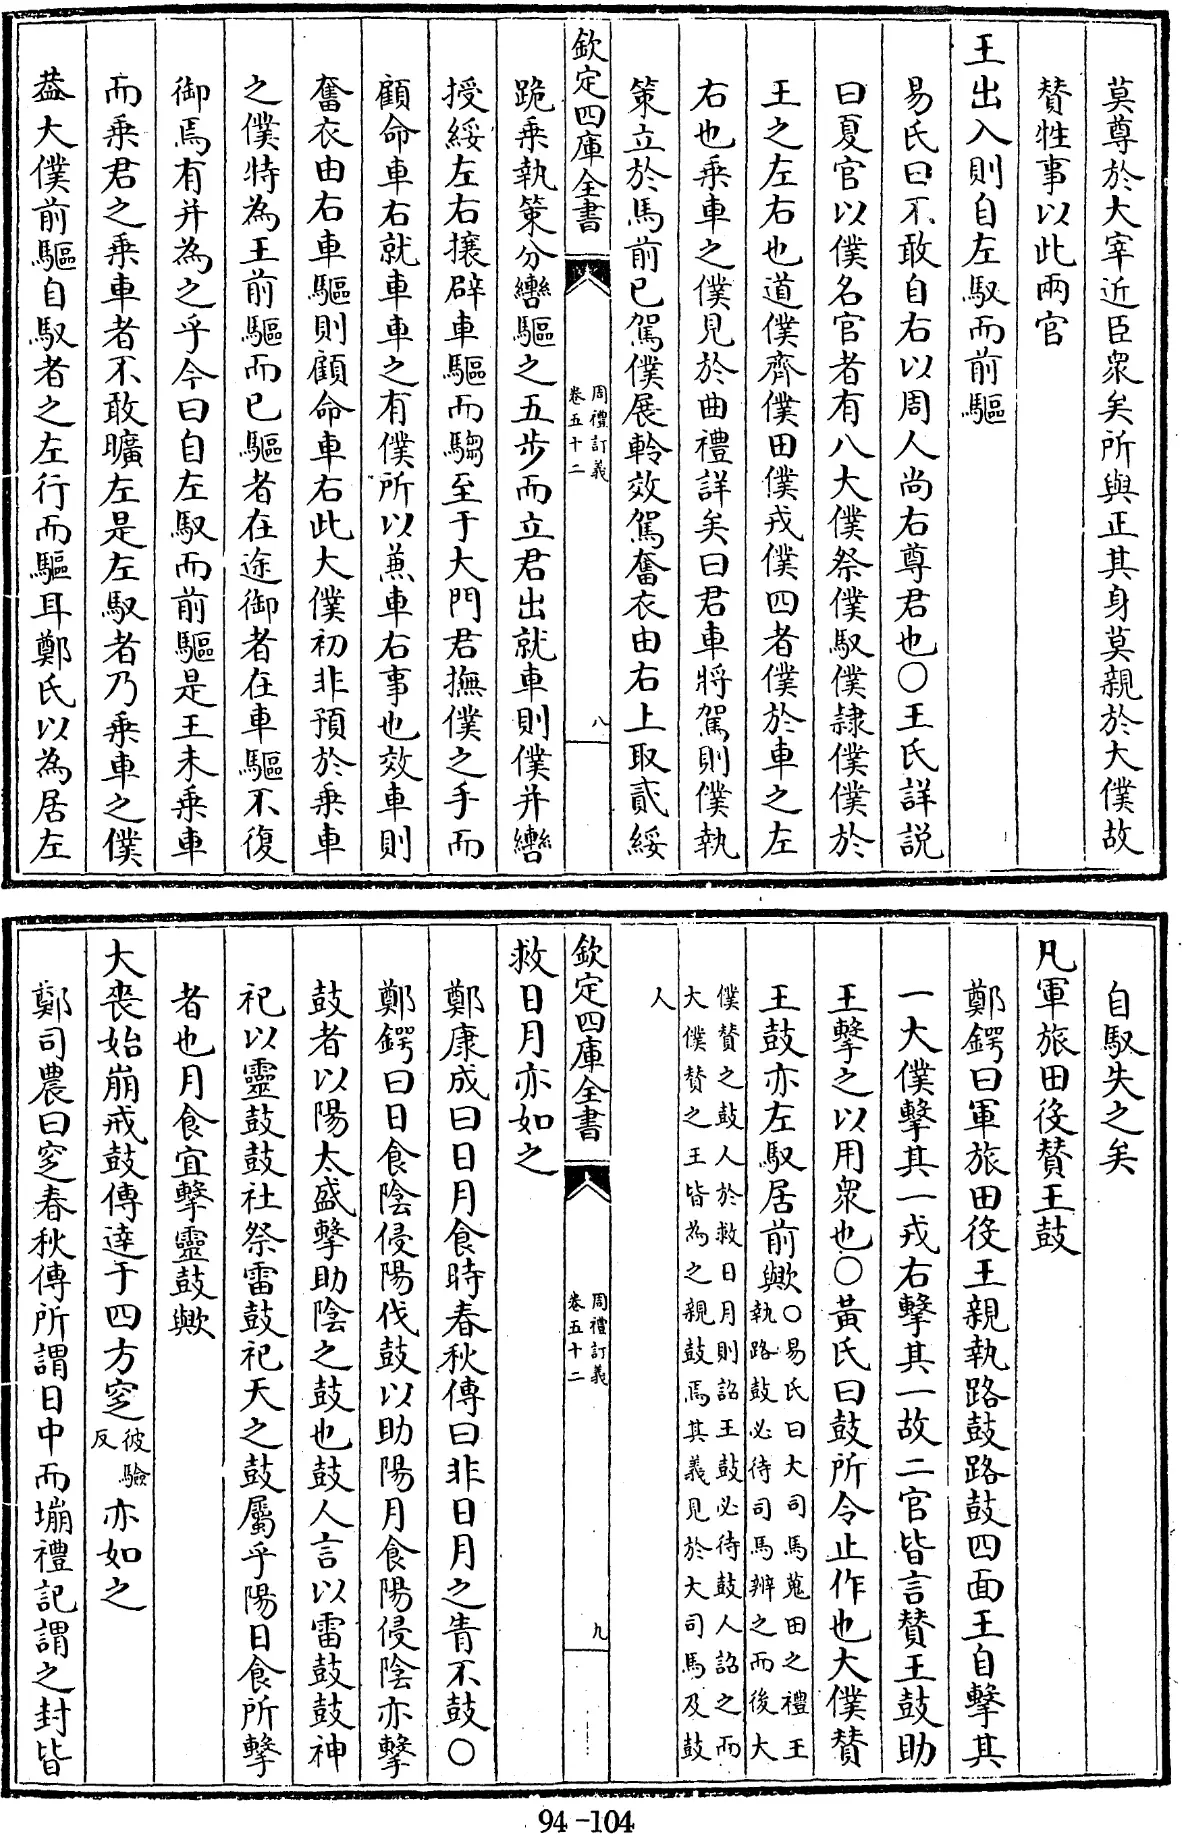 莫尊於大宰近臣衆矣所與正其身莫親於大僕故
贊牲事以此兩官
王出入則自左馭而前驅
易氏曰不敢自右以周人尚右尊君也〇王氏詳説
曰夏官以僕名官者有八大僕祭僕馭僕隷僕僕於
王之左右也道僕齊僕田僕戎僕四者僕於車之左
右也乗車之僕見於曲禮詳矣曰君車將駕則僕執
策立於馬前已駕僕展軨效駕奮衣由右上取貳綏
欽定四庫全書
周禮訂義
卷五十二
八
跪乗執策分轡驅之五步而立君出就車則僕并轡
授綏左右攘辟車驅而騶至于大門君撫僕之手而
顧命車右就車車之有僕所以兼車右事也效車則
奮衣由右車驅則顧命車右此大僕初非預於乗車
之僕特為王前驅而已驅者在途御者在車驅不復
御焉有并為之乎今曰自左馭而前驅是王未乗車
而乗君之乗車者不敢曠左是左馭者乃乗車之僕
葢大僕前驅自馭者之左行而驅耳鄭氏以為居左
自馭失之矣
凡軍旅田役贊王鼓
鄭鍔曰軍旅田役王親執路鼓路鼓四面王自擊其
一大僕擊其一戎右擊其一故二官皆言贊王鼓助
王擊之以用衆也〇黄氏曰鼓所令止作也大僕贊
王鼓亦左馭居前歟〇易氏曰大司馬蒐田之禮王
執路鼓必待司馬辨之而後大
僕贊之鼓人於救日月則詔王鼓必待鼓人詔之而
大僕贊之王皆為之親鼓焉其義見於大司馬及鼓
人
欽定四庫全書
周禮訂義
卷五十二
九
救日月亦如之
鄭康成曰日月食時春秋傳曰非日月之眚不鼓〇
鄭鍔曰日食陰侵陽伐鼓以助陽月食陽侵陰亦擊
鼓者以陽太盛擊助陰之鼓也鼓人言以雷鼓鼓神
祀以靈鼓鼓社祭雷鼓祀天之鼓屬乎陽日食所擊
者也月食宜擊靈鼓歟
大喪始崩戒鼓傳達于四方窆彼驗
反亦如之
鄭司農曰窆春秋傳所謂日中而塴禮記謂之封皆
94-104